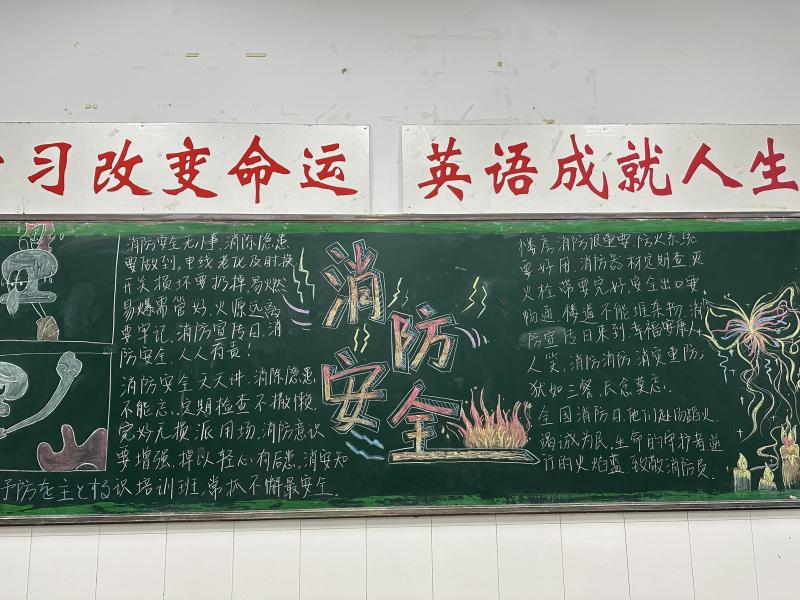 习改变命运
英语成就人生
消防安全无小事,消除隐患
要做到。电线老化及时换
开关损坏要扔掉,易燃
易爆需管好,火源远离
要牢记,消防宣传日,消
防安全,人人有责!
消防安全天天讲,消除隐患
不能忘,定期检查不撤懒,
完好无损派用场,消防意识
要增强,掉以轻心有后患,消安知
识培训班,常抓不懈最安全.
予防を主とする
消防
安全
楼房消防很重要,防火系统
要好用,消防器材定期查,灭
火栓带要完好,安全出口要
畅通,楼道不能堆杂物,消
防宣传日来到,幸福安康人
人笑,消防消防,消灾重防,
犹如三餐,长念莫忘.
全国消防日,他们赴汤蹈火,
竭诚为民,生命的守护者逆
行的火焰蓝,致敬消防员